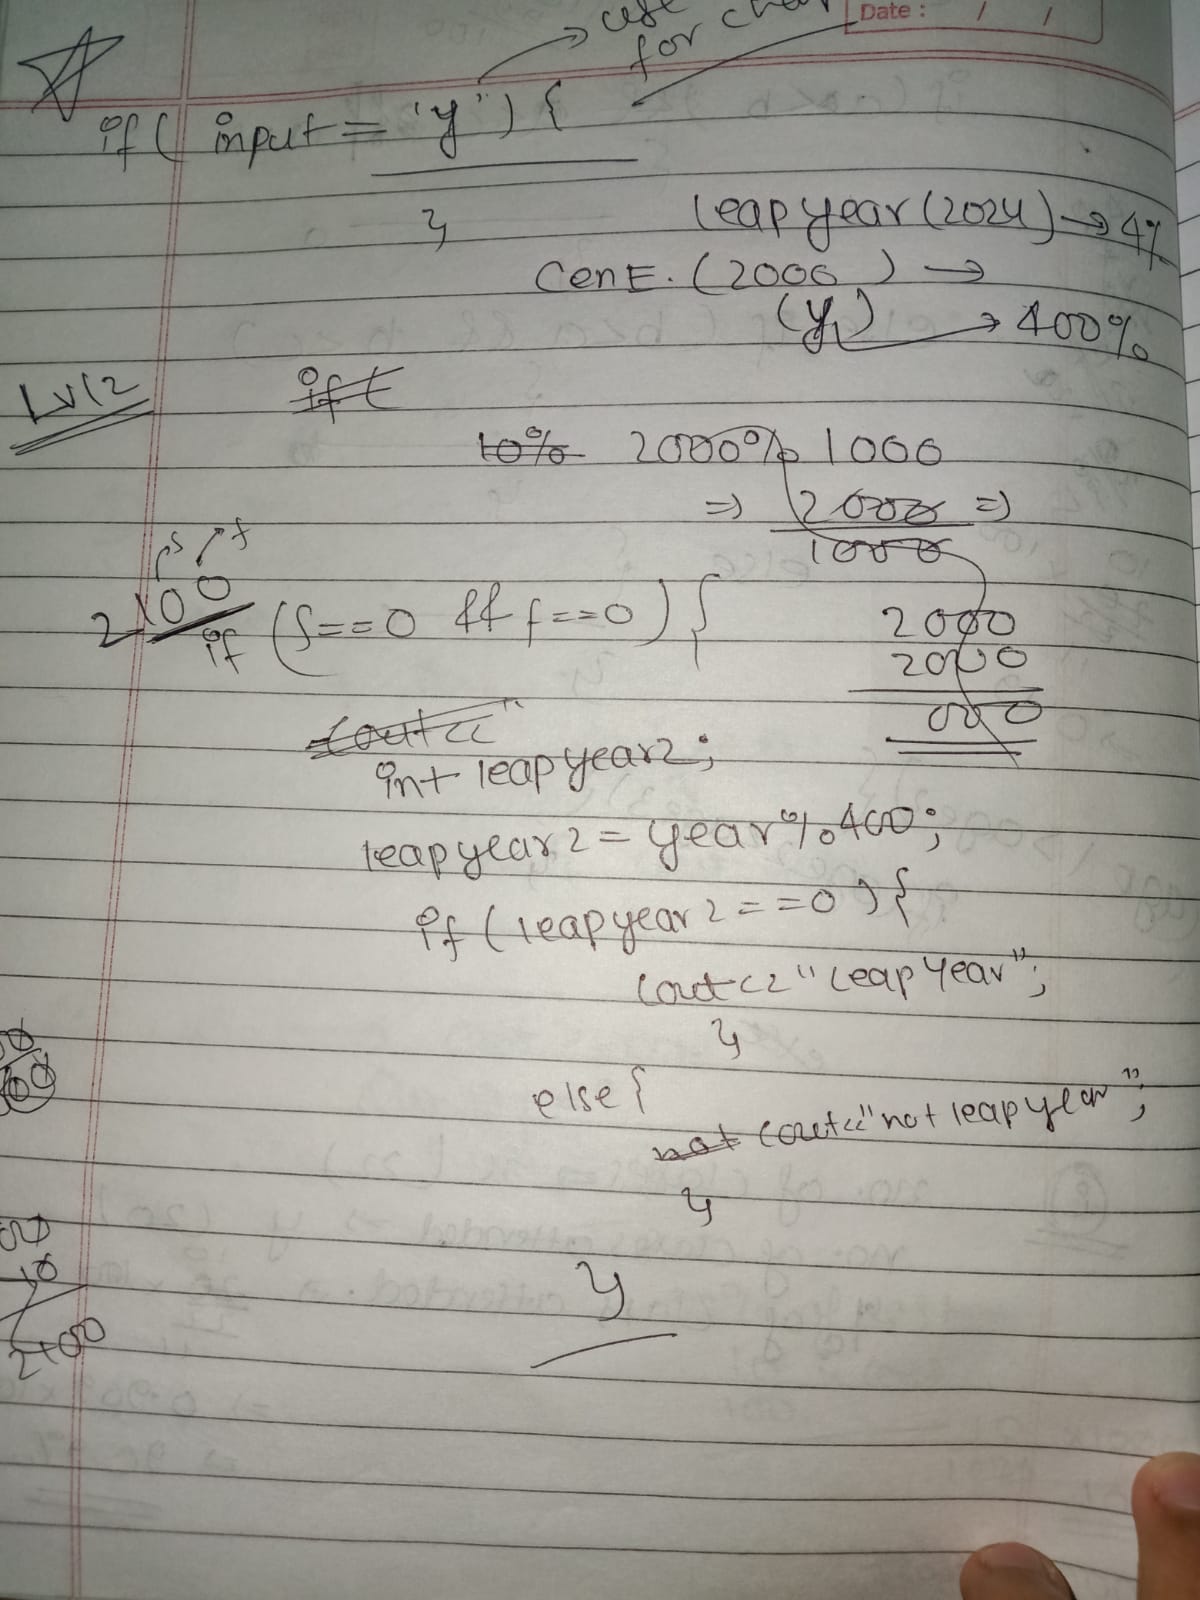 use
for char
Date : / /
if( input = 'y') {
}
leap year (2024) → 4%
Cent. (2000) →
(y) → 400%
Lvl2
10% 2000% 1000
⇒ 2000 ⇒
1000
s f
2100
if (s==0 && f==0) {
2000
2000
000
cout<<"
int leapyear2;
leapyear2 = year%400;
if (leapyear2==0) {
cout<<"Leap Year";
}
else {
not cout<<"not leap year";
}
}